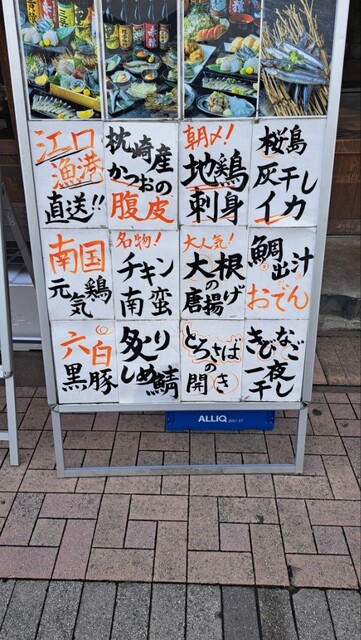 江口
漁港
直送!!
枕崎産
かつおの
腹皮
朝〆!
地鶏
刺身
桜島
灰干し
イカ
南国
元気鶏
名物!
チキン
南蛮
大人気!
大根
の
唐揚げ
鯛
出汁
おでん
六白
黒豚
炙り
しめ鯖
とろさば
の
開き
きびなご
一夜
干し
ALLIQ